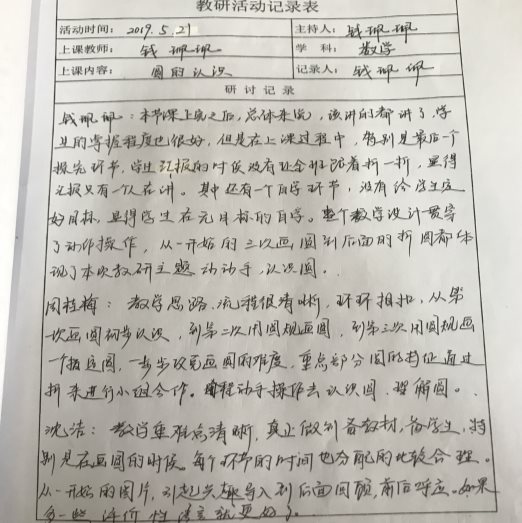 教研活动记录表
活动时间: 2019.5.21 主持人: 钱珮珮
上课教师: 钱珮珮 学科: 数学
上课内容: 圆的认识 记录人: 钱珮珮
研讨记录
钱珮珮:本节课上完之后,总体来说,该讲的都讲了,学
生的掌握程度也很好,但是在上课过程中,特别是最后一个
探究环节,学生汇报的时候没有让全班跟着折一折,显得
汇报只有一个人在讲。其中还有一个自学环节,没有给学生定
好目标,显得学生在无目标的自学。整个教学设计贯穿
了动作操作,从一开始的三次画圆到后面的折圆都体
现了本次教研主题动动手,认识圆。
周桂梅:教学思路、流程很清晰,环环相扣,从第
一次画圆初步认识,到第二次用圆规画圆,到第三次用圆规画
一个指定圆,一步步攻克画圆的难度,重点部分圆的特征通过
折来进行小组合作。程动手操作去认识圆,理解圆。
沈洁:教学重难点清晰,真正做到备教材,备学生,特
别是在画圆的时候,每个环节的时间也分配的比较合理。
从一开始的图片,引起兴趣导入到后面回顾,前后呼应。如果
多一些评价性语言就更好了。